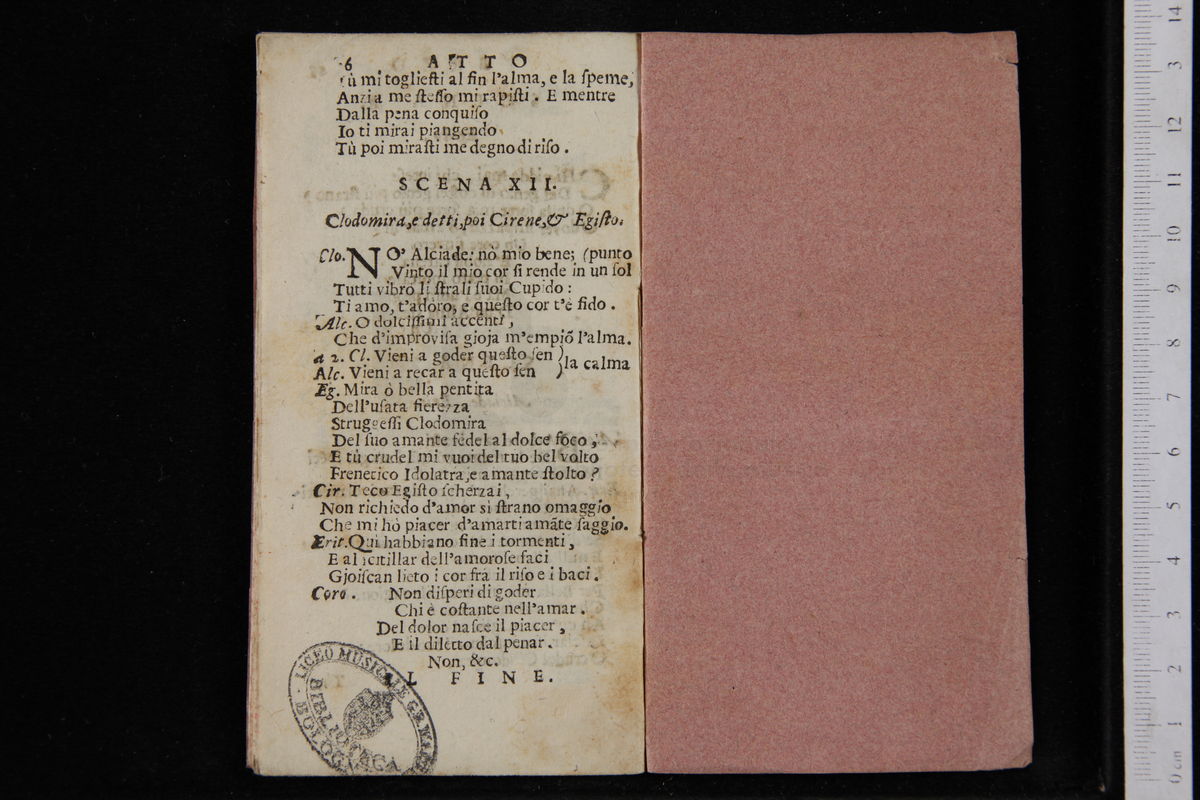 6 ATTO
Tù mi togliesti al fin l'alma, e la speme,
Anzi a me stesso mi rapisti. E mentre
Dalla pena conquiso
Io ti mirai piangendo
Tù poi mirasti me degno di riso.
SCENA XII.
Clodomira, e detti, poi Cirene, & Egisto.
Clo. NO' Alciade; nò mio bene; (punto
Vinto il mio cor si rende in un sol
Tutti vibrò li strali suoi Cupido:
Ti amo, t'adoro, e questo cor t'è fido.
Alc. O dolcissimi accenti,
Che d'improvisa gioja m'empiõ l'alma.
a 2. Cl. Vieni a goder questo sen
Alc. Vieni a recar a questo sen ) la calma
Eg. Mira ò bella pentita
Dell'usata fierezza
Struggessi Clodomira
Del suo amante fedel al dolce foco,
E tù crudel mi vuoi del tuo bel volto
Frenetico Idolatra, e amante stolto?
Cir. Teco Egisto scherzai,
Non richiedo d'amor sì strano omaggio
Che mi hò piacer d'amarti amãte saggio.
Erit. Qui habbiano fine i tormenti,
E al scitillar dell'amorose faci
Gioiscan lieto i cor frà il riso e i baci.
Coro. Non disperi di goder
Chi è costante nell'amar.
Del dolor nasce il piacer,
E il diletto dal penar.
Non, &c.
L FINE.
LICEO MUSICALE
BIBLIOTECA
BOLOGNA
14
3
12
11
10
9
8
7
6
5
4
3
2
1
0 cm